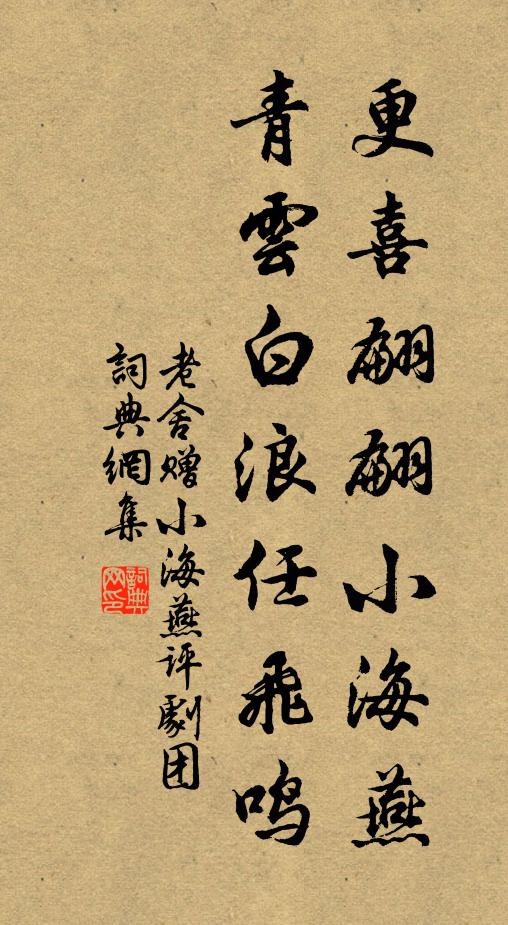 更喜翩翩小海燕
青雲白浪任飛鸣
老舍赠小海燕评劇团
詞典網集
詞典網印